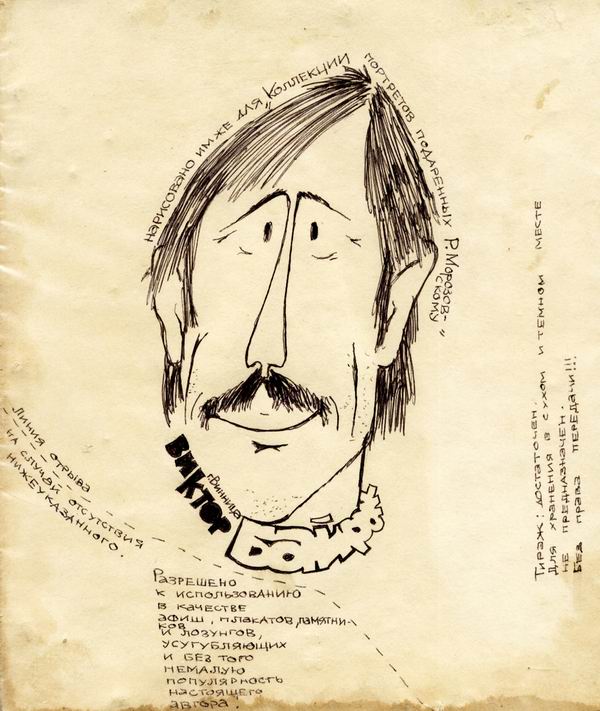 нарисовано им же для „Коллекции портретов подаренных Р. Морозов-
скому"
Тираж: достаточен.
Для хранения в сухом и темном месте
не предназначен.
Без права передачи!!!
Линия отрыва
на случай отсутствия
нижеуказанного.
Виктор
г. Винница
Разрешено
к использованию
в качестве
афиш, плакатов, памятни-
ков
и лозунгов,
усугубляющих
и без того
немалую
популярность
настоящего
автора!